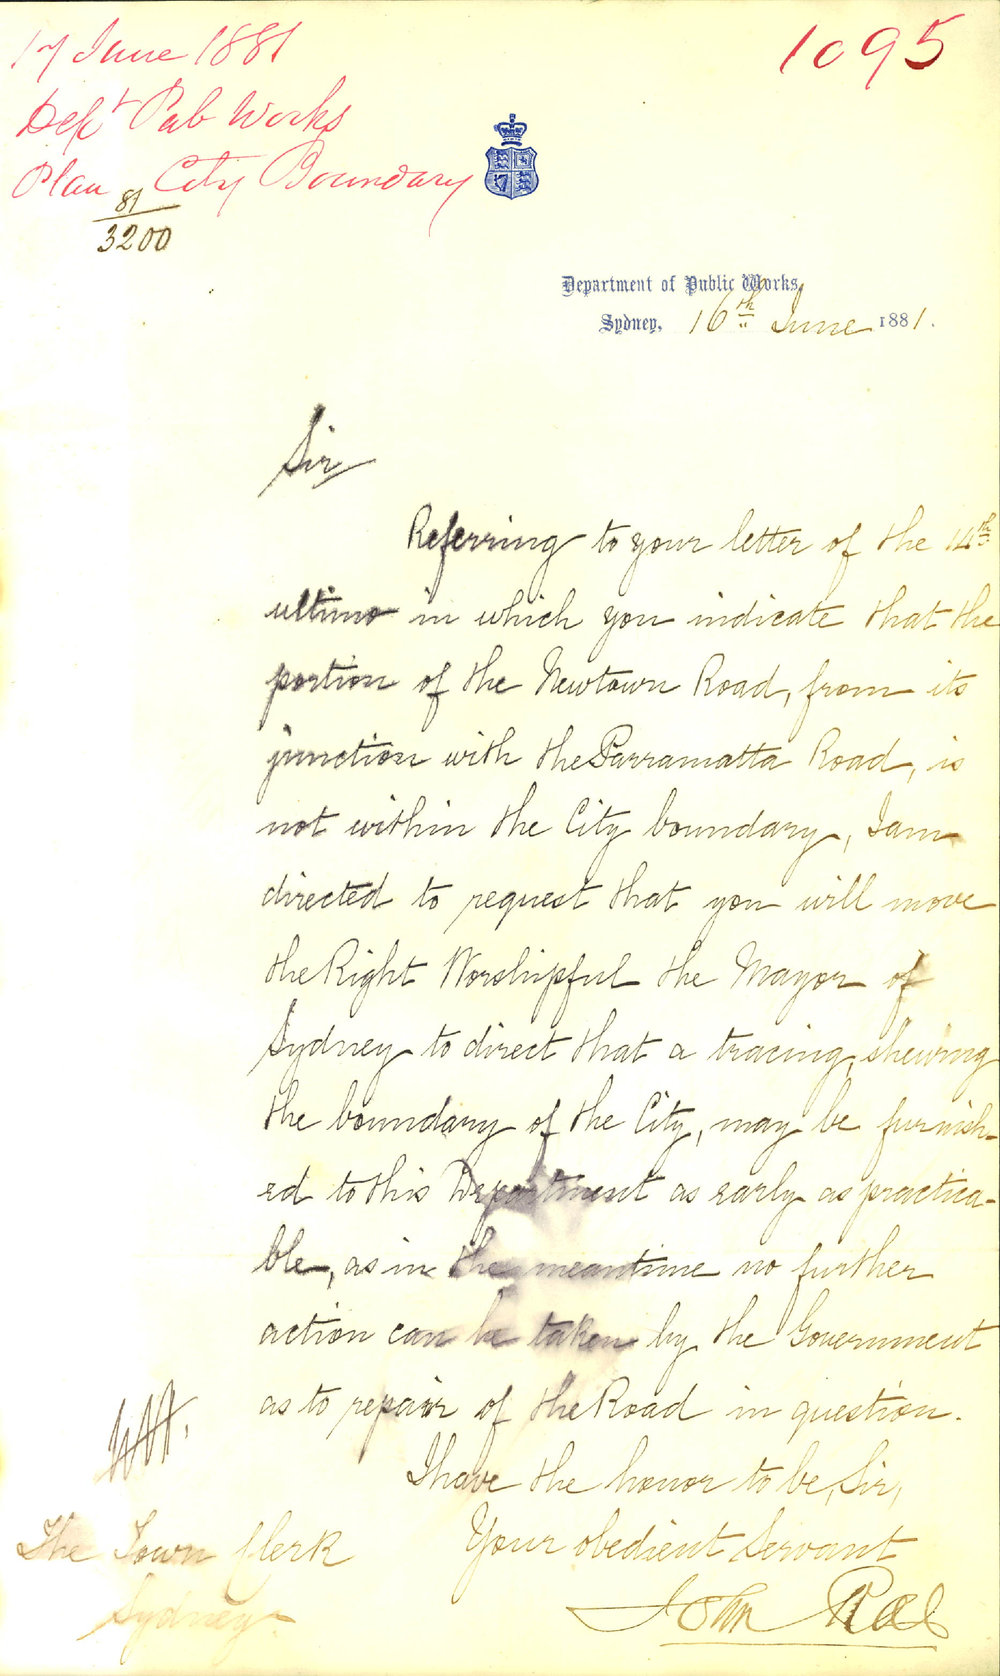 17 June 1881
1095
Dept Pub Works
Plan City Boundary
81
3200
Department of Public Works,
Sydney, 16th June 1881.
Sir
Referring to your letter of the 14th
ultimo in which you indicate that the
portion of the Newtown Road, from its
junction with the Parramatta Road, is
not within the City boundary, I am
directed to request that you will move
the Right Worshipful the Mayor of
Sydney to direct that a tracing, shewing
the boundary of the City, may be furnish-
ed to this Department as early as practica-
ble, as in the meantime no further
action can be taken by the Government
as to repair of the Road in question.
I have the honor to be, Sir,
Your obedient Servant
John Rae
The Town Clerk
Sydney